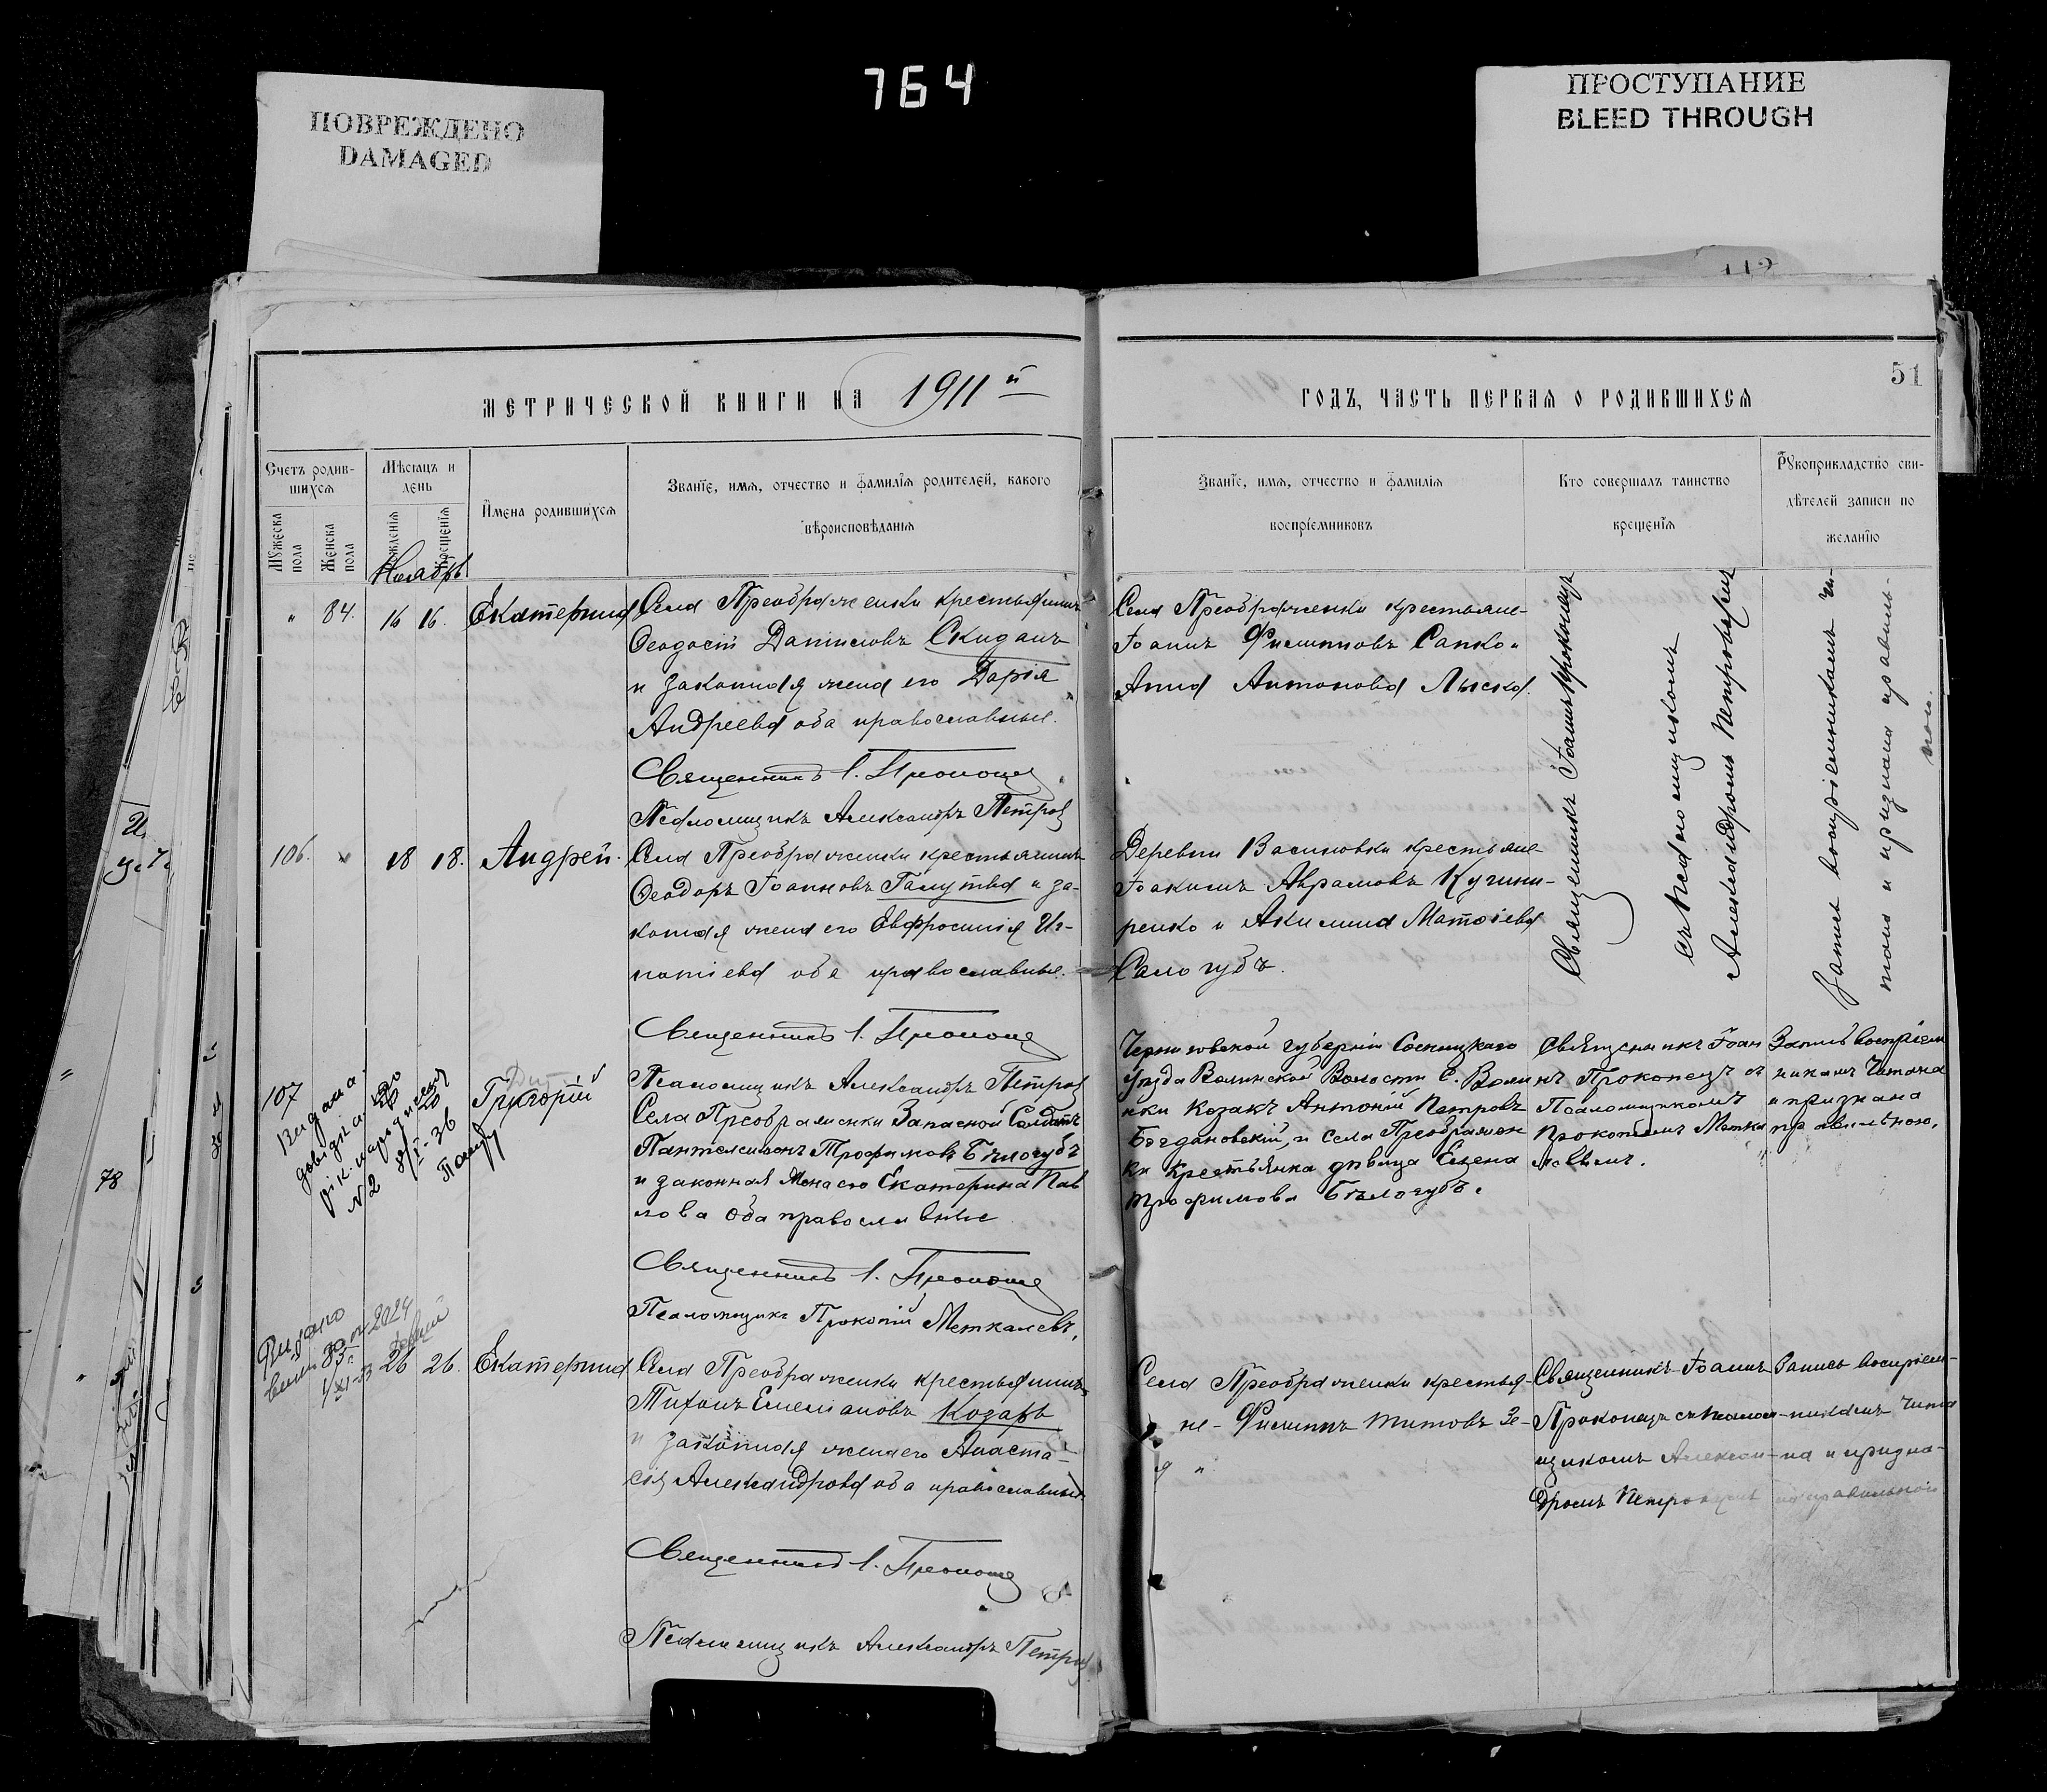 764
ПОВРЕЖДЕНО
DAMAGED
ПРОСТУПАНИЕ
BLEED THROUGH
51
МЕТРИЧЕСКОЙ КНИГИ НА 1911й
ГОДЪ, ЧАСТЬ ПЕРВАЯ О РОДИВШИХСЯ
Счетъ родив-
шихся
Мѣсяцъ и
день
Мужеска
пола
Женска
пола
Крещенія
Имена родившихся
Званіе, имя, отчество и фамилія родителей, какого
вѣроисповѣданія
Званіе, имя, отчество и фамилія
воспріемниковъ
Кто совершалъ таинство
крещенія
Рукоприкладство сви-
дѣтелей записи по
желанію
Ноябрь
" 84. 16 16. Екатерина
Села Преображенки крестьянинъ
Ѳеодосій Даниловъ Скиданъ
и законная жена его Дарія
Андреева оба православные.
Священникъ І. Прокопец
Псаломщикъ Александръ Петров
Села Преображенки крестьяне-
Іоаннъ Филипповъ Сапко и
Анна Антонова Лыско.
Священникъ Іоаннъ Прокопецъ
съ псаломщикомъ
Александромъ Петровымъ
Запись воспріемникамъ чи-
тана и признана правиль-
ною.
106. " 18 18. Андрей.
Села Преображенки крестьянинъ
Ѳеодоръ Іоанновъ Галутва и за-
конная жена его Евфросинія Иг-
натіева оба православные.
Священникъ І. Прокопец
Псаломщикъ Александръ Петров
Деревни Васиновки крестьяне
Іоакимъ Аврамовъ Кучини-
ренко и Акилина Матѳіева
Сологубъ.
107 20 20 Григорій
Видана
довідка
N 2
36
Села Преображенки Запасной Солдатъ
Пантелеимонъ Трофимовъ Бѣлогубъ
и законная жена его Екатерина Пав
лова Оба православные
Священникъ І. Прокопец
Псаломщикъ Прокопій Меткалевъ,
Черниговской губерніи Сосницкаго
Уѣзда Волинской Волости С. Волин
ки Козакъ Антоній Петровъ
Богдановскій, и села Преображен
ки Крестьянка дѣвица Елена
Трофимова Бѣлогубъ.
Священникъ Іоан
нъ Прокопецъ съ
Псаломщикомъ
Прокопіемъ Меткa
левымъ.
Запись воспріем
никамъ Читана
и признана
правильною.
Видано
85. 26 26. Екатерина
Села Преображенки крестьянинъ
Тихонъ Емеліановъ Козарь
и законная жена его Анаста-
сія Александрова оба православные
Священникъ І. Прокопец
Псаломщикъ Александръ Петров
Села Преображенки крестья-
не - Филиппъ Титовъ Зе-
Священникъ Іоаннъ
Прокопецъ съ псалом-
щикомъ Алексан-
дромъ Петровымъ
Запись воспріем-
никамъ чита
на и призна-
на правильной
78